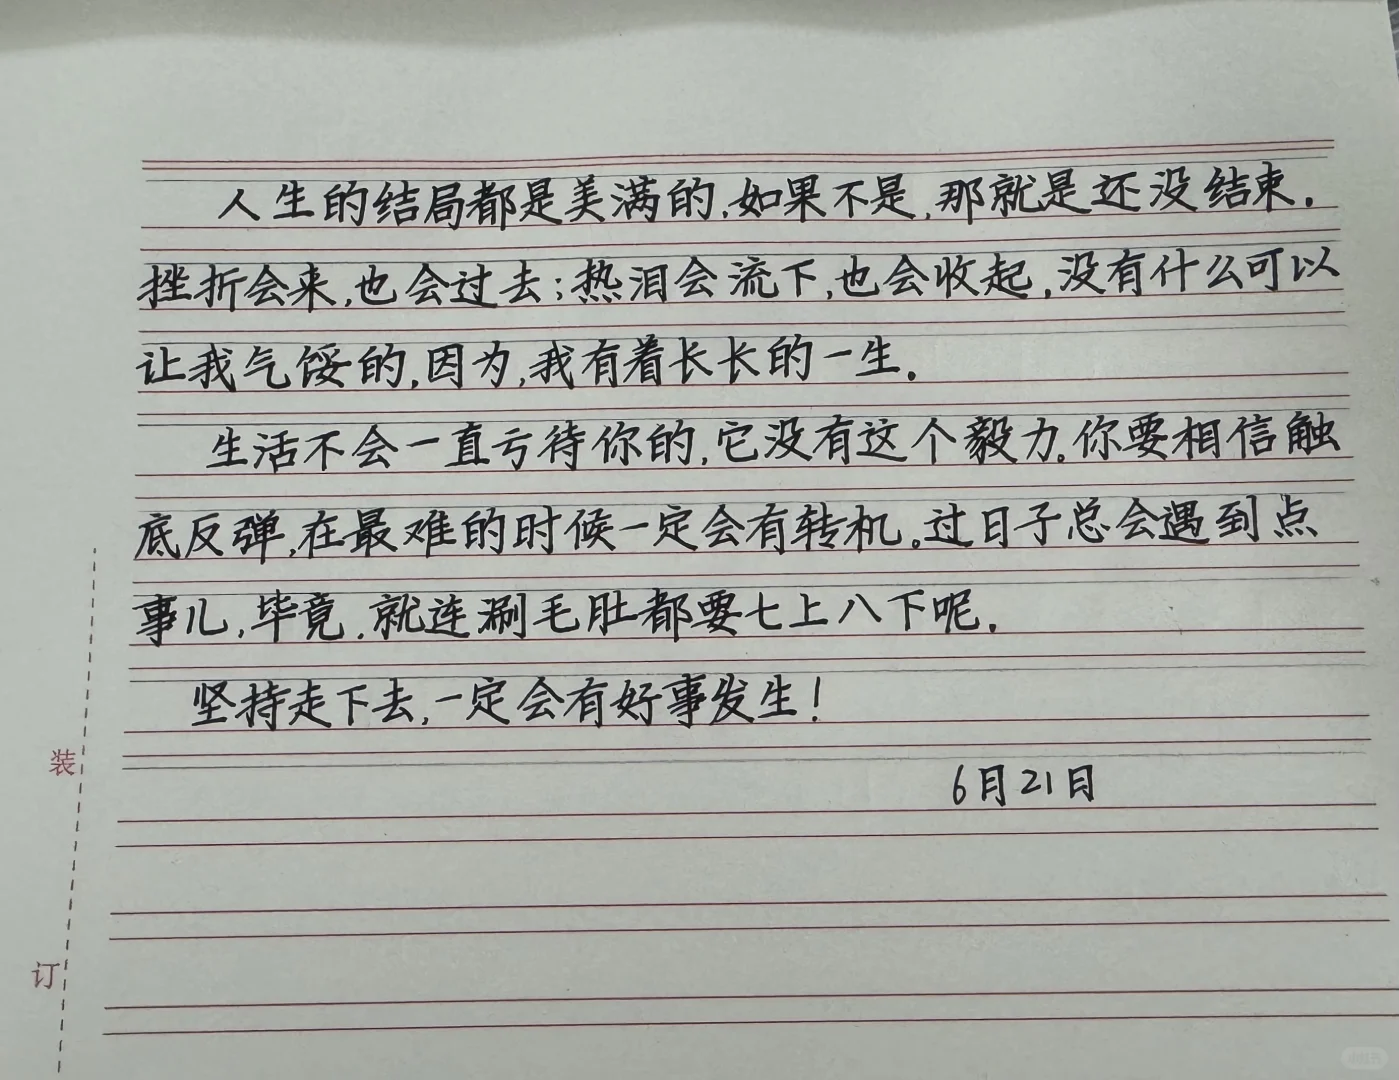 人生的结局都是美满的,如果不是,那就是还没结束.
挫折会来,也会过去;热泪会流下,也会收起,没有什么可以
让我气馁的,因为,我有着长长的一生.
生活不会一直亏待你的,它没有这个毅力。你要相信触
底反弹,在最难的时候一定会有转机。过日子总会遇到点
事儿,毕竟,就连涮毛肚都要七上八下呢.
坚持走下去,一定会有好事发生!
6月21日
装
订